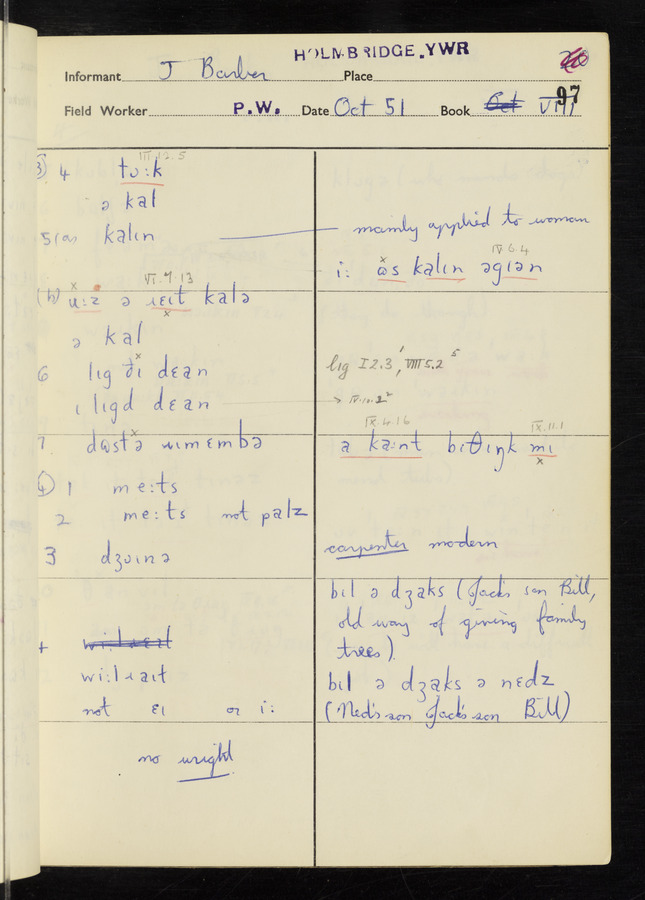 HOLMBRIDGE. YWR
Informant J Barber Place
Field Worker P.W. Date Oct 51 Book Oct VIII
97
3) 4 tʊ:k III.12.5
ə kal
5(a) kalɪn mainly applied to woman
i: ɷs kalɪn əgɪən IV.6.4
(b) u:z ə ɹɛɪt kalə VI.7.13
ə kal
6 lɪg ðɪ dɛan lɪg I 2.3, VIII 5.2
ɪ lɪgd dɛan
7 dɷstə ɹɪmɛmbə a ka:nt bɪθɪŋk mɪ IX.4.16 IX.11.1
4) 1 mɛ:ts
2 mɛ:ts not palz
3 dʒɔɪnə carpenter modern
bɪl ə dʒaks (Jack's son Bill,
old way of giving family
trees).
4
wi:lɹaɪt bɪl ə dʒaks ə nɛdz
not ɛɪ or i: (Ned's son Jack's son Bill)
no wright